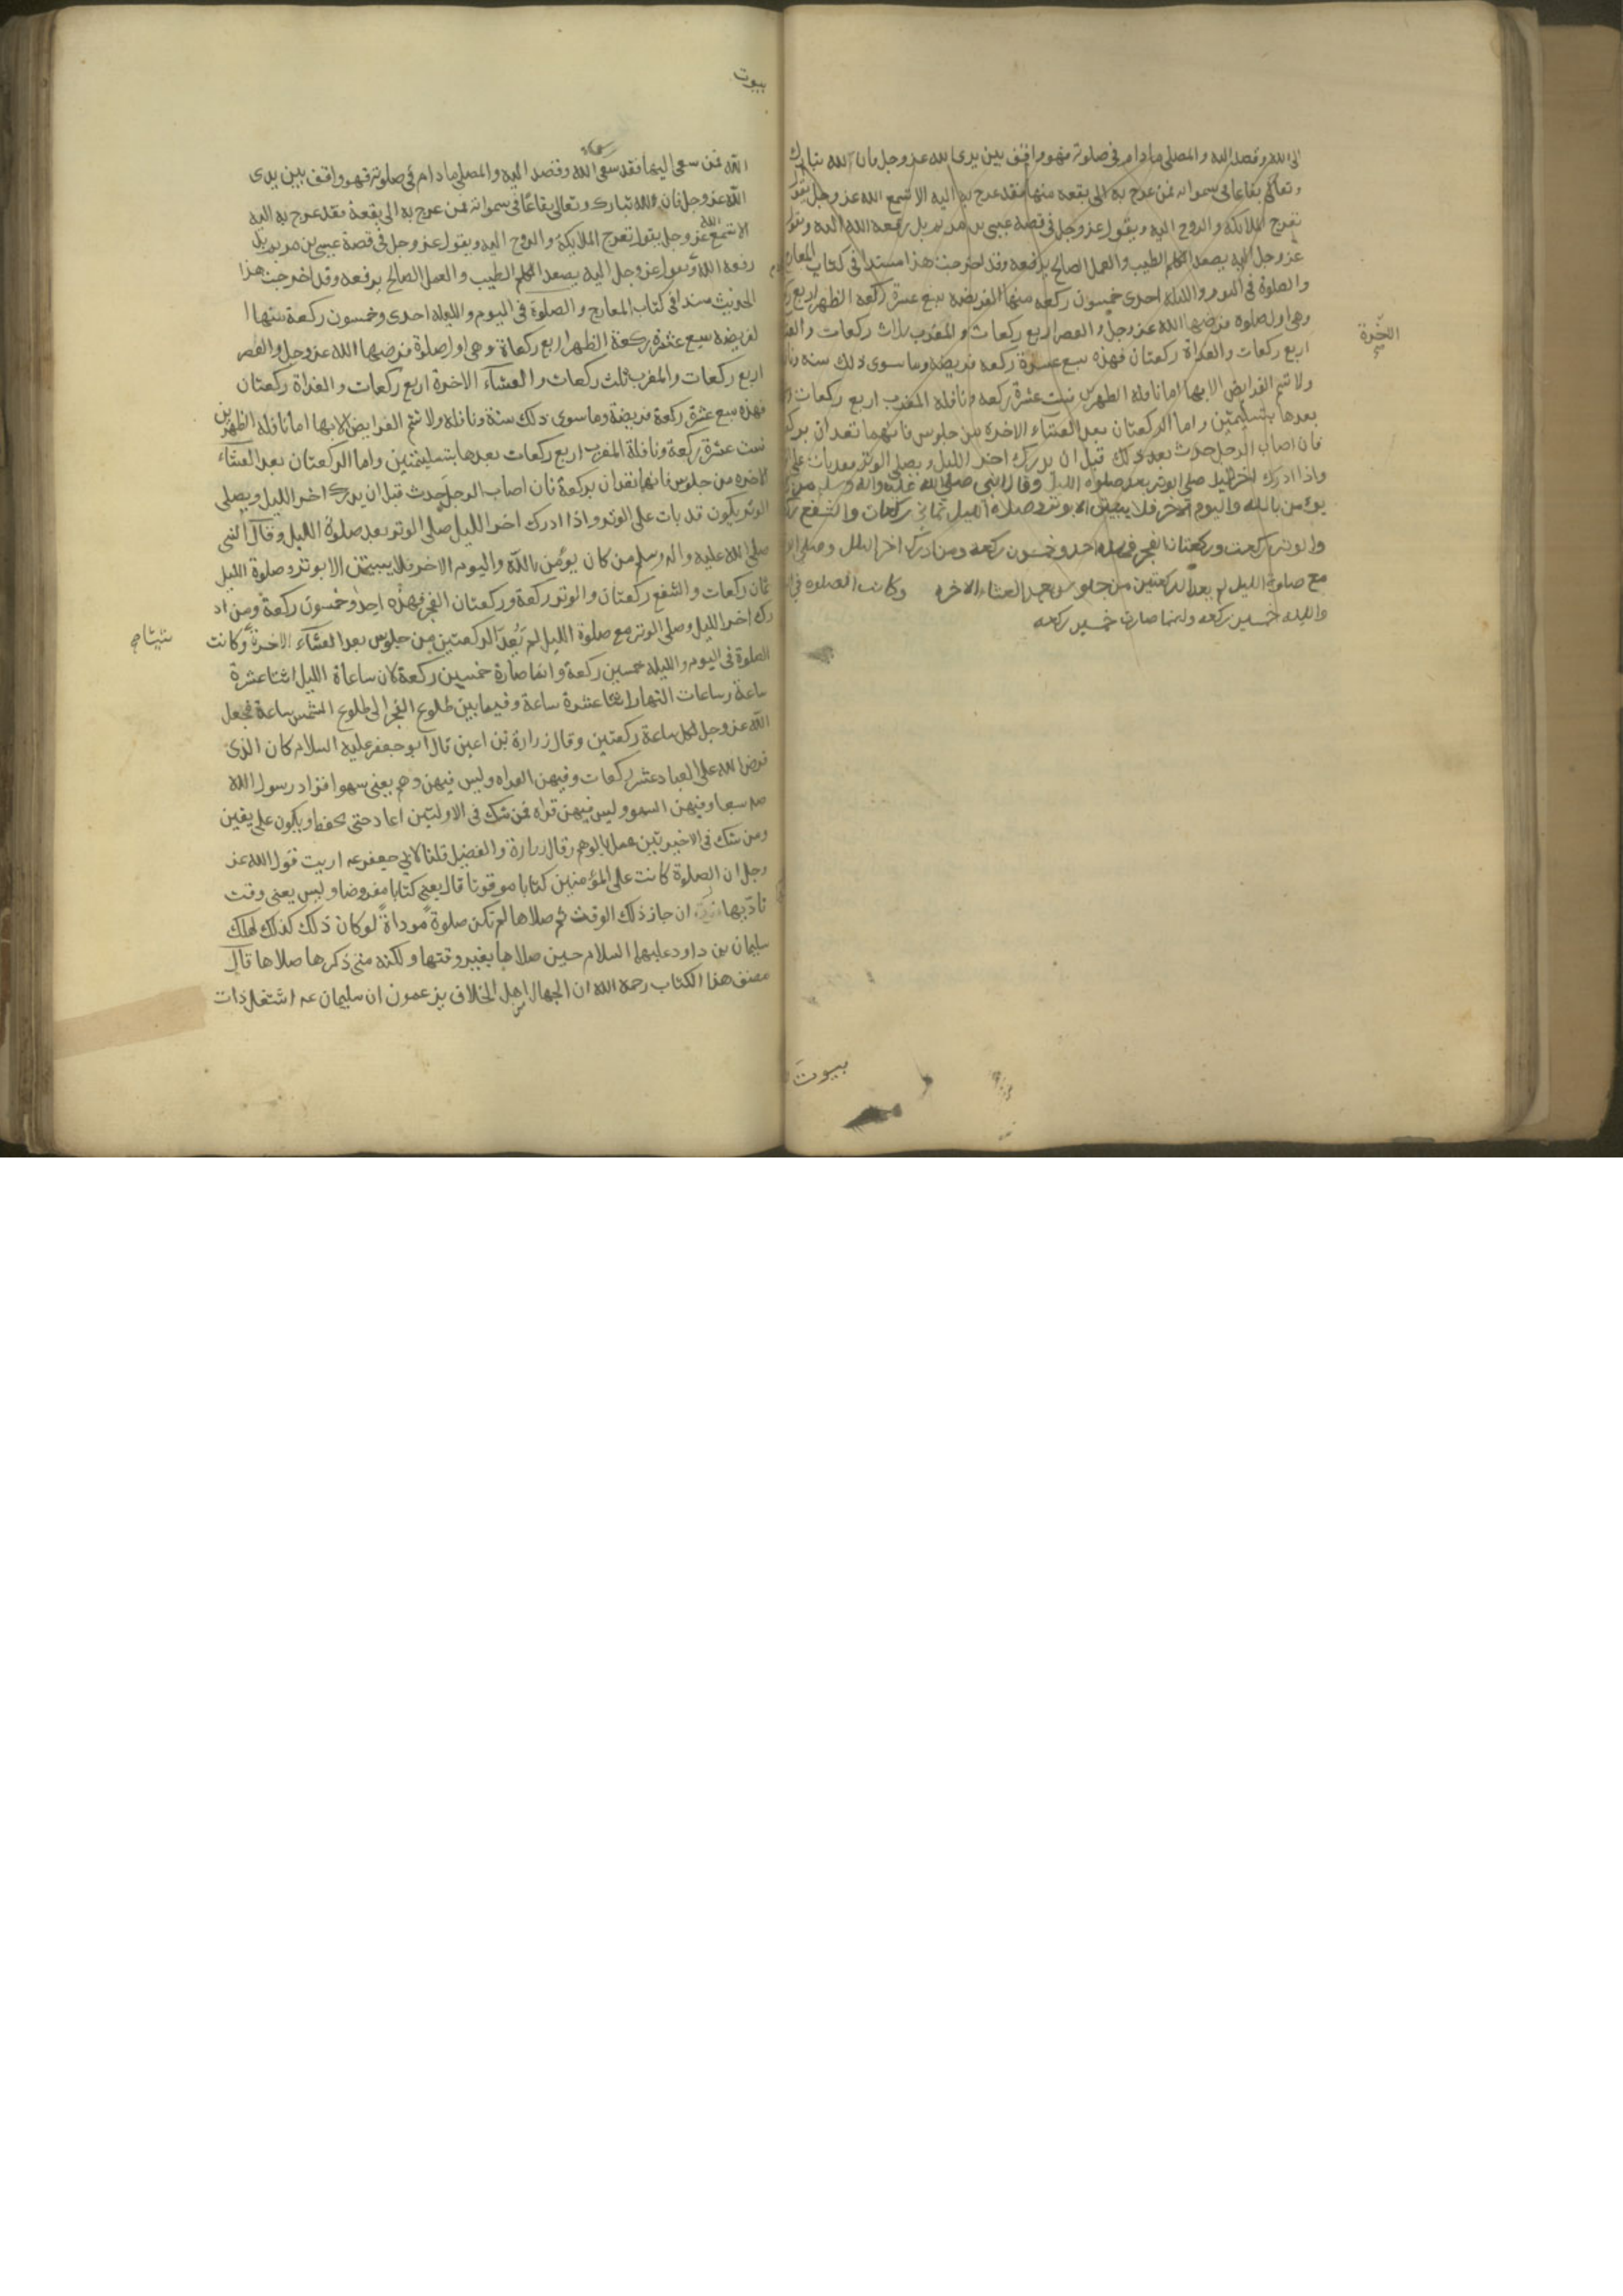 الى الله وقصد اليه والمصلى مادام فى صلوته فهو واقف بين يدى الله عز وجل فان الله تبارك
وتعالى بقاعا فى سمواته فمن عرج به الى بقعه منها فقد عرج به اليه الا تسمع الله عز وجل يقول
تعرج الملائكة والروح اليه ويقول عز وجل فى قصه عيسى بن مريم بل رفعه الله اليه ويقول
عز وجل اليه يصعد الكلم الطيب والعمل الصالح يرفعه وقد اخرجت هذا مسندا فى كتاب المعارج
والصلوة فى اليوم والليله احدى خمسون ركعه منها الفريضه سبع عشرة ركعه الظهر اربع
وهى اول صلوه فرضها الله عز وجل والعصر اربع ركعات والمغرب ثلاث ركعات
اربع ركعات والغداة ركعتان فهذه سبع عشرة ركعه فريضه وما سوى ذلك سنه
ولا تتم الفرايض الا بها اما نافله الظهرين ست عشرة ركعه ونافله المغرب اربع ركعات
بعدها بتسليمتين واما الركعتان بعد العشاء الاخره من جلوس فانهما تعدان
فان اصاب الرجل حدث بعد ذلك قبل ان يدرك اخر الليل ويصلى الوتر
واذا ادرك اخر الليل صلى الوتر بعد صلوة الليل وقال النبى صلى الله عليه واله وسلم من
يؤمن بالله واليوم الاخر فلا يبيتن الا بوتر وصلاة الليل ثمانى ركعات والشفع
والوتر ركعت وركعتا الفجر فهذه احد وخمسون ركعه ومن ادرك اخر الليل وصلى
مع صلوة الليل لم يعد الركعتين من جلوس بعد العشاء الاخره وكانت الصلوه فى
والليله خمسين ركعه وانما صارت خمسين ركعه
بيوت
بيوت
الله فمن سعى اليها فقد سعى الله وقصد اليه والمصلى مادام فى صلوته فهو واقف بين يدى
الله عز وجل فان لله تبارك وتعالى بقاعا فى سمواته فمن عرج به الى بقعة فقد عرج به اليه
الا تسمع الله عز وجل يقول تعرج الملايكة والروح اليه ويقول عز وجل فى قصة عيسى بن مريم بل
رفعه الله ويقول عز وجل اليه يصعد الكلم الطيب والعمل الصالح يرفعه وقد اخرجت هذا
الحديث مسندا فى كتاب المعارج والصلوة فى اليوم والليله احدى وخمسون ركعة منها ا
لفريضه سبع عشرة ركعة الظهر اربع ركعاة وهى اول صلوة فرضها الله عز وجل والعصر
اربع ركعات والمغرب ثلث ركعات والعشاء الاخرة اربع ركعات والغداة ركعتان
فهذه سبع عشرة ركعة فريضة وما سوى ذلك سنة ونافله ولا تتم الفرايض الا بها اما نافله الظهرين
ست عشرة ركعة ونافلة المغرب اربع ركعات بعدها بتسليمتين واما الركعتان بعد العشاء
الاخره من جلوس فانهما تعدان بركعة فان اصاب الرجل حدث قبل ان يدرك اخر الليل ويصلى
الوتر يكون قد بات على الوتر واذا ادرك اخر الليل صلى الوتر بعد صلوة الليل وقال النبى
صلى الله عليه واله وسلم من كان يؤمن بالله واليوم الاخر فلا يبيتن الا بوتر وصلوة الليل
ثمان ركعات والشفع ركعتان والوتر ركعة وركعتان الفجر فهذه احد وخمسون ركعة ومن اد
رك اخر الليل وصلى الوتر مع صلوة الليل لم يعد الركعتين من جلوس بعد العشاء الاخرة وكانت
الصلوة فى اليوم والليله خمسين ركعة وانما صارة خمسين ركعة لان ساعاة الليل اثنتا عشرة
ساعة وساعات النهار اثنتا عشرة ساعة وفيما بين طلوع الفجر الى طلوع الشمس ساعة فجعل
الله عز وجل لكل ساعة ركعتين وقال زرارة بن اعين قال ابو جعفر عليه السلام كان الذى
فرض الله على العباد عشر ركعات وفيهن القراه وليس فيهن وهم يعنى سهوا فزاد رسول الله
صه سبعا وفيهن السهو وليس فيهن قراه فمن شك فى الاولتين اعاد حتى يحفظ ويكون على يقين
ومن شك فى الاخيرتين عمل بالوهم وقال زرارة والفضيل قلنا لابى جعفر عه اريت قول الله عز
وجل ان الصلوة كانت على المؤمنين كتابا موقوتا قال يعنى كتابا مفروضا وليس يعنى وقت
ان جاز ذلك الوقت ثم صلاها لم تكن صلوة موداة لو كان ذلك كذلك لهلك
سليمان بن داود عليهما السلام حين صلاها بغير وقتها ولكنه متى ذكرها صلاها قال
مصنف هذا الكتاب رحمه الله ان الجهال من اهل الخلاف يزعمون ان سليمان عه اشتغل ذات